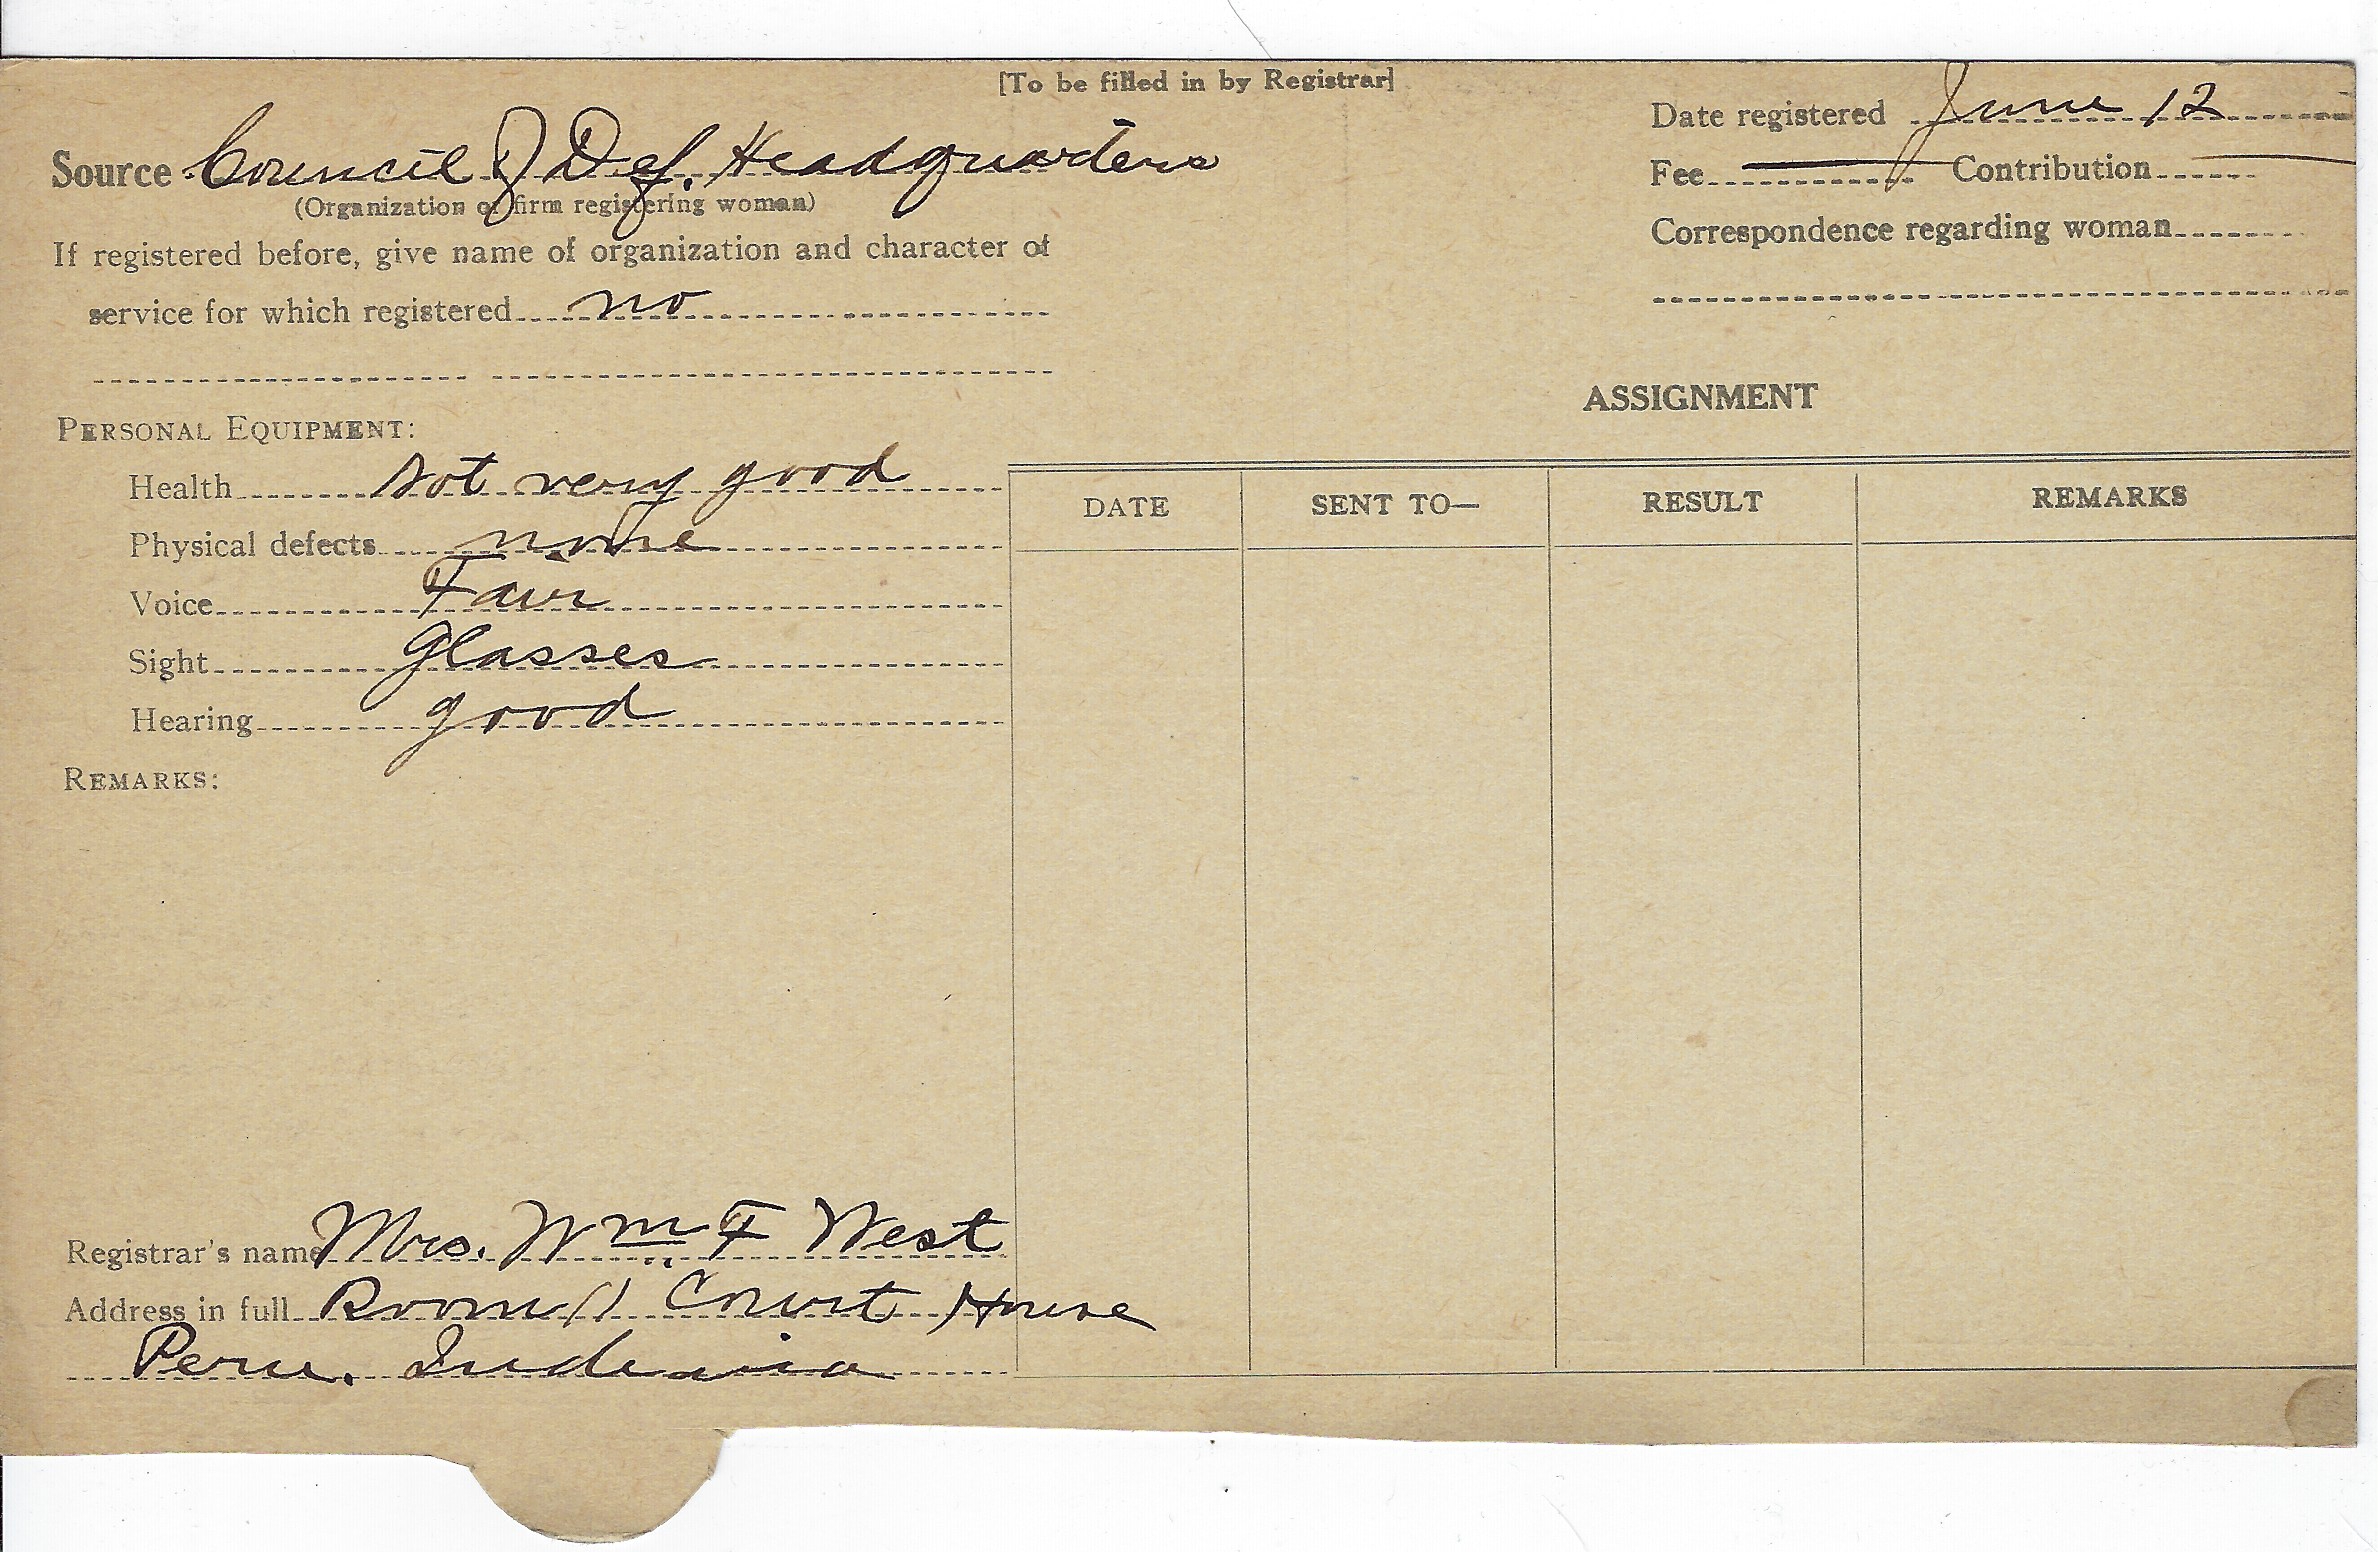 [To be filled in by Registrar]
Source Council of Def. Headquarters
(Organization or firm registering woman)
If registered before, give name of organization and character of
service for which registered no
Date registered June 12
Fee — Contribution —
Correspondence regarding woman
PERSONAL EQUIPMENT:
Health Not very good
Physical defects none
Voice Fair
Sight Glasses
Hearing good
REMARKS:
ASSIGNMENT
DATE SENT TO— RESULT REMARKS
Registrar's name Mrs. Wm F West
Address in full Room 11 Court House
Peru, Indiana